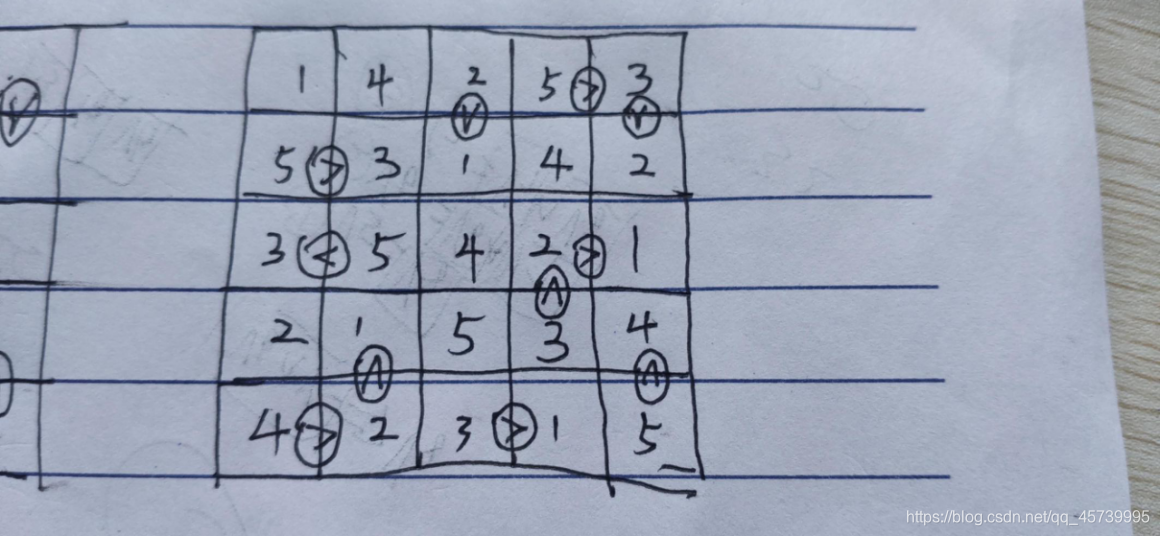 1 4 2 5 > 3
∨ ∨
5 > 3 1 4 2
3 < 5 4 2 > 1
∧
2 1 5 3 4
∧ ∧
4 > 2 3 > 1 5
https://blog.csdn.net/qq_45739995